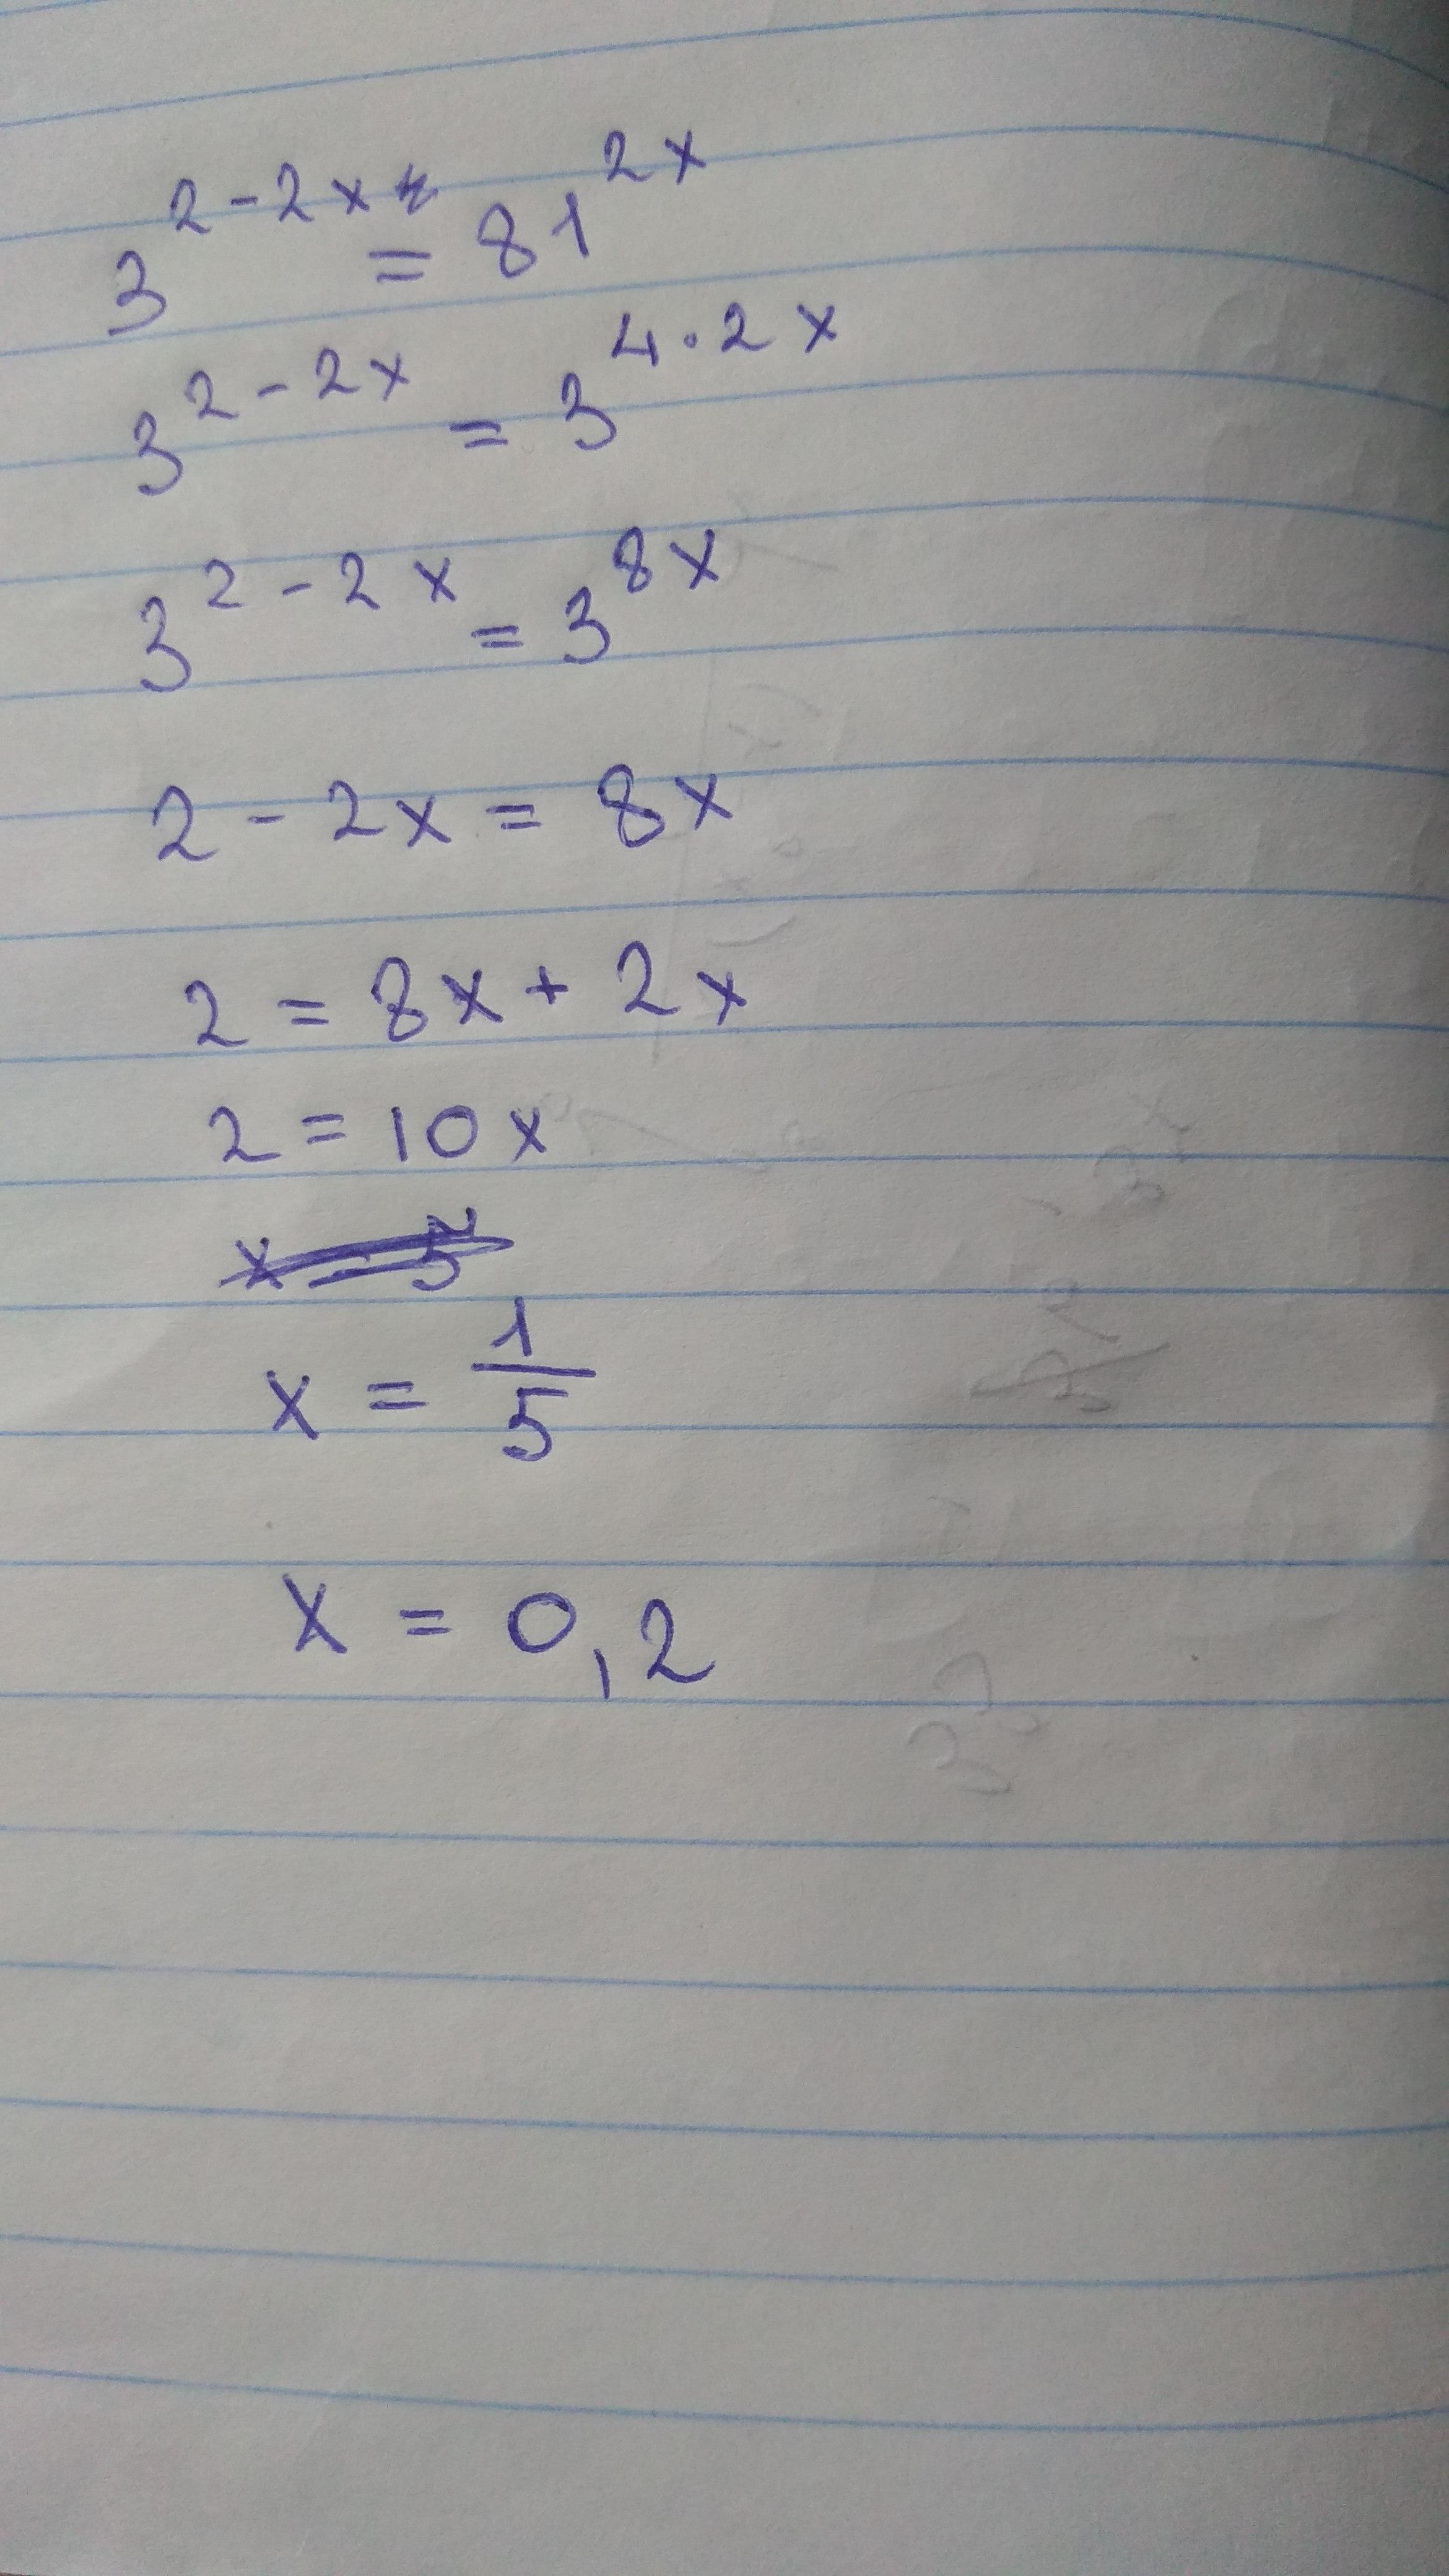 3^{2-2x} = 81^{2x}
3^{2-2x} = 3^{4·2x}
3^{2-2x} = 3^{8x}
2 - 2x = 8x
2 = 8x + 2x
2 = 10x
x = \frac{1}{5}
x = 0,2